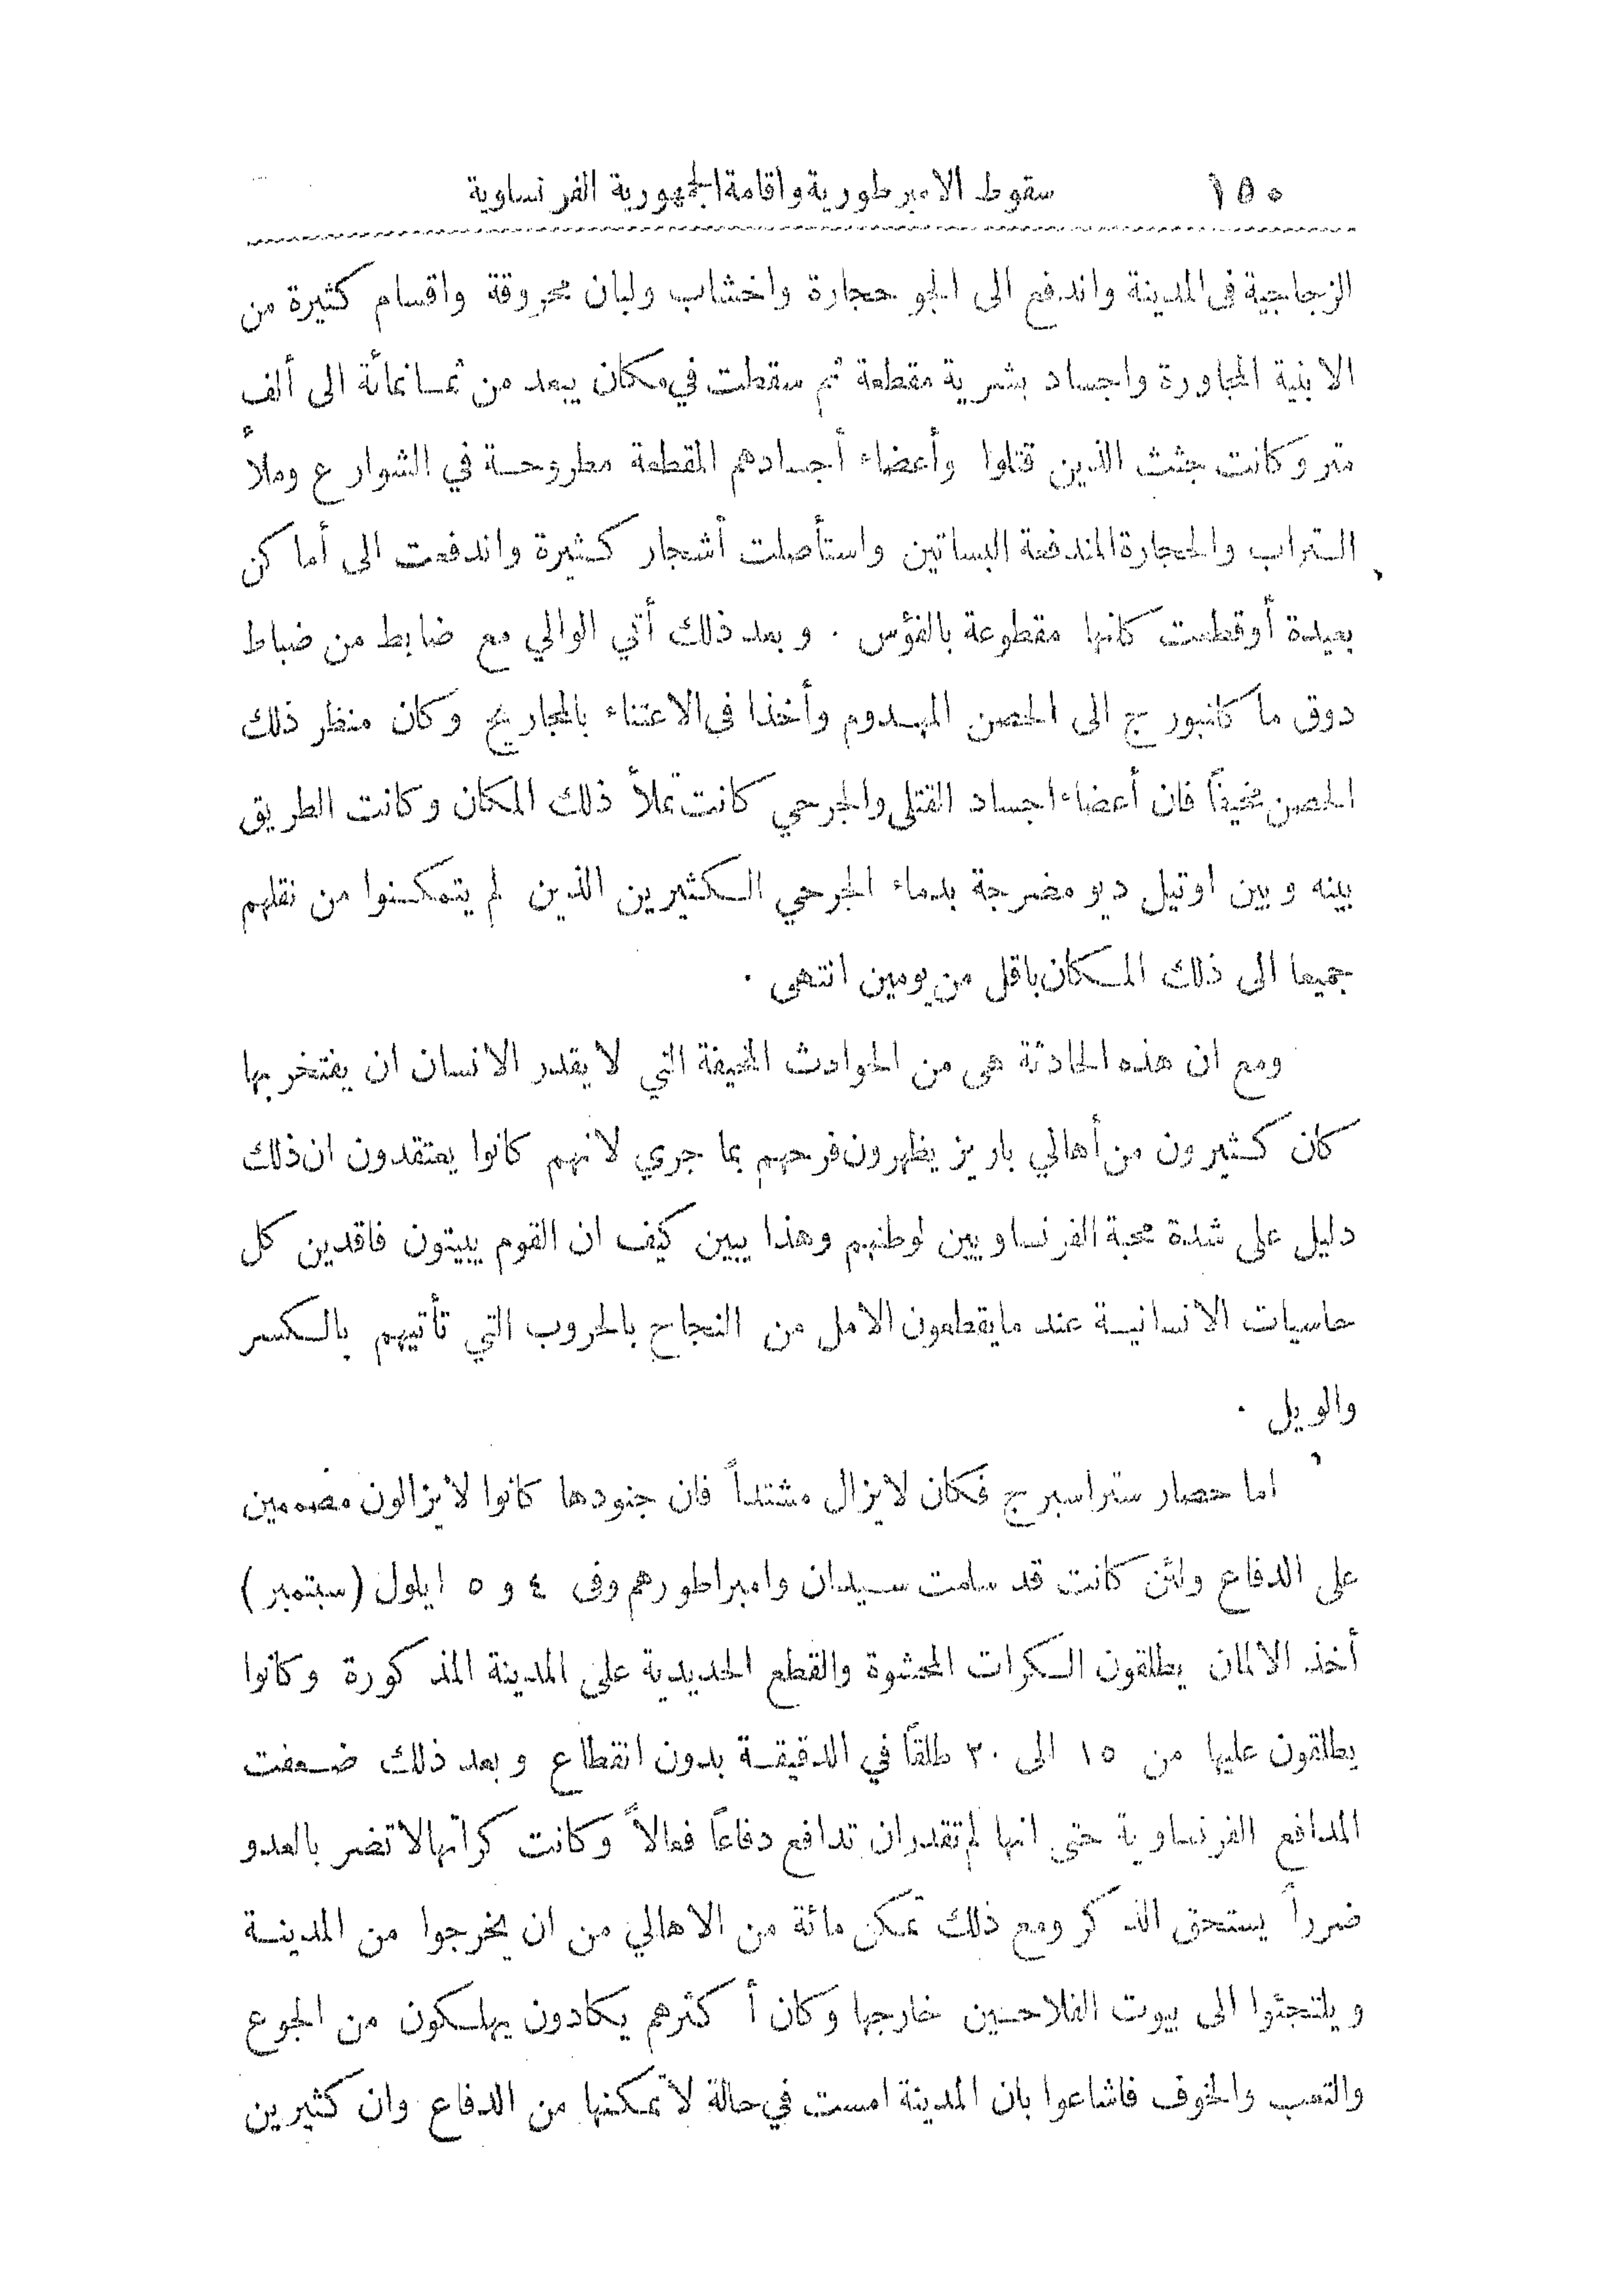 ١٥٠ سقوط الامبرطورية واقامة الجمهورية الفرنساوية
الزجاجية فى المدينة واندفع الى الجو حجارة واخشاب ولبان محروقة واقسام كثيرة من
الابنية المجاورة واجساد بشرية مقطعة ثم سقطت في مكان يبعد من ثمانمائة الى ألف
متر وكانت جثث الذين قتلوا وأعضاء أجسادهم المقطعة مطروحة في الشوارع وملأ
التراب والحجارة المندفعة البساتين واستأصلت أشجار كثيرة واندفعت الى أماكن
بعيدة أوقطعت كانها مقطوعة بالفؤس . وبعد ذلك أتي الوالي مع ضابط من ضباط
دوق ماكانبورج الى الحصن المهدوم وأخذا فى الاعتناء بالمجاريح وكان منظر ذلك
الحصن مخيفاً فان أعضاء اجساد القتلى والجرحي كانت تملأ ذلك المكان وكانت الطريق
بينه وبين اوتيل ديو مضرجة بدماء الجرحي الكثيرين الذين لم يتمكنوا من نقلهم
جميعا الى ذلك المكان باقل من يومين انتهى .
ومع ان هذه الحادثة هى من الحوادث المخيفة التي لا يقدر الانسان ان يفتخر بها
كان كثيرون من أهالي باريز يظهرون فرحهم بما جري لانهم كانوا يعتقدون ان ذلك
دليل على شدة محبة الفرنساويين لوطنهم وهذا يبين كيف ان القوم يبيتون فاقدين كل
حاسيات الانسانية عند ما يقطعون الامل من النجاح بالحروب التي تأتيهم بالكسر
والويل .
اما حصار ستراسبرج فكان لايزال مشتداً فان جنودها كانوا لايزالون مصممين
على الدفاع ولئن كانت قد سلمت سيدان وامبراطورهم وفى ٤ و ٥ ايلول (سبتمبر)
أخذ الالمان يطلقون الكرات المحشوة والقطع الحديدية على المدينة المذكورة وكانوا
يطلقون عليها من ١٥ الى ٢٠ طلقاً في الدقيقة بدون انقطاع وبعد ذلك ضعفت
المدافع الفرنساوية حتى انها لم تقدران تدافع دفاعاً فعالاً وكانت كراتها لاتضر بالعدو
ضرراً يستحق الذكر ومع ذلك تمكن مائة من الاهالي من ان يخرجوا من المدينة
ويلتجئوا الى بيوت الفلاحين خارجها وكان أكثرهم يكادون يهلكون من الجوع
والتعب والخوف فاشاعوا بان المدينة امست في حالة لا تمكنها من الدفاع وان كثيرين